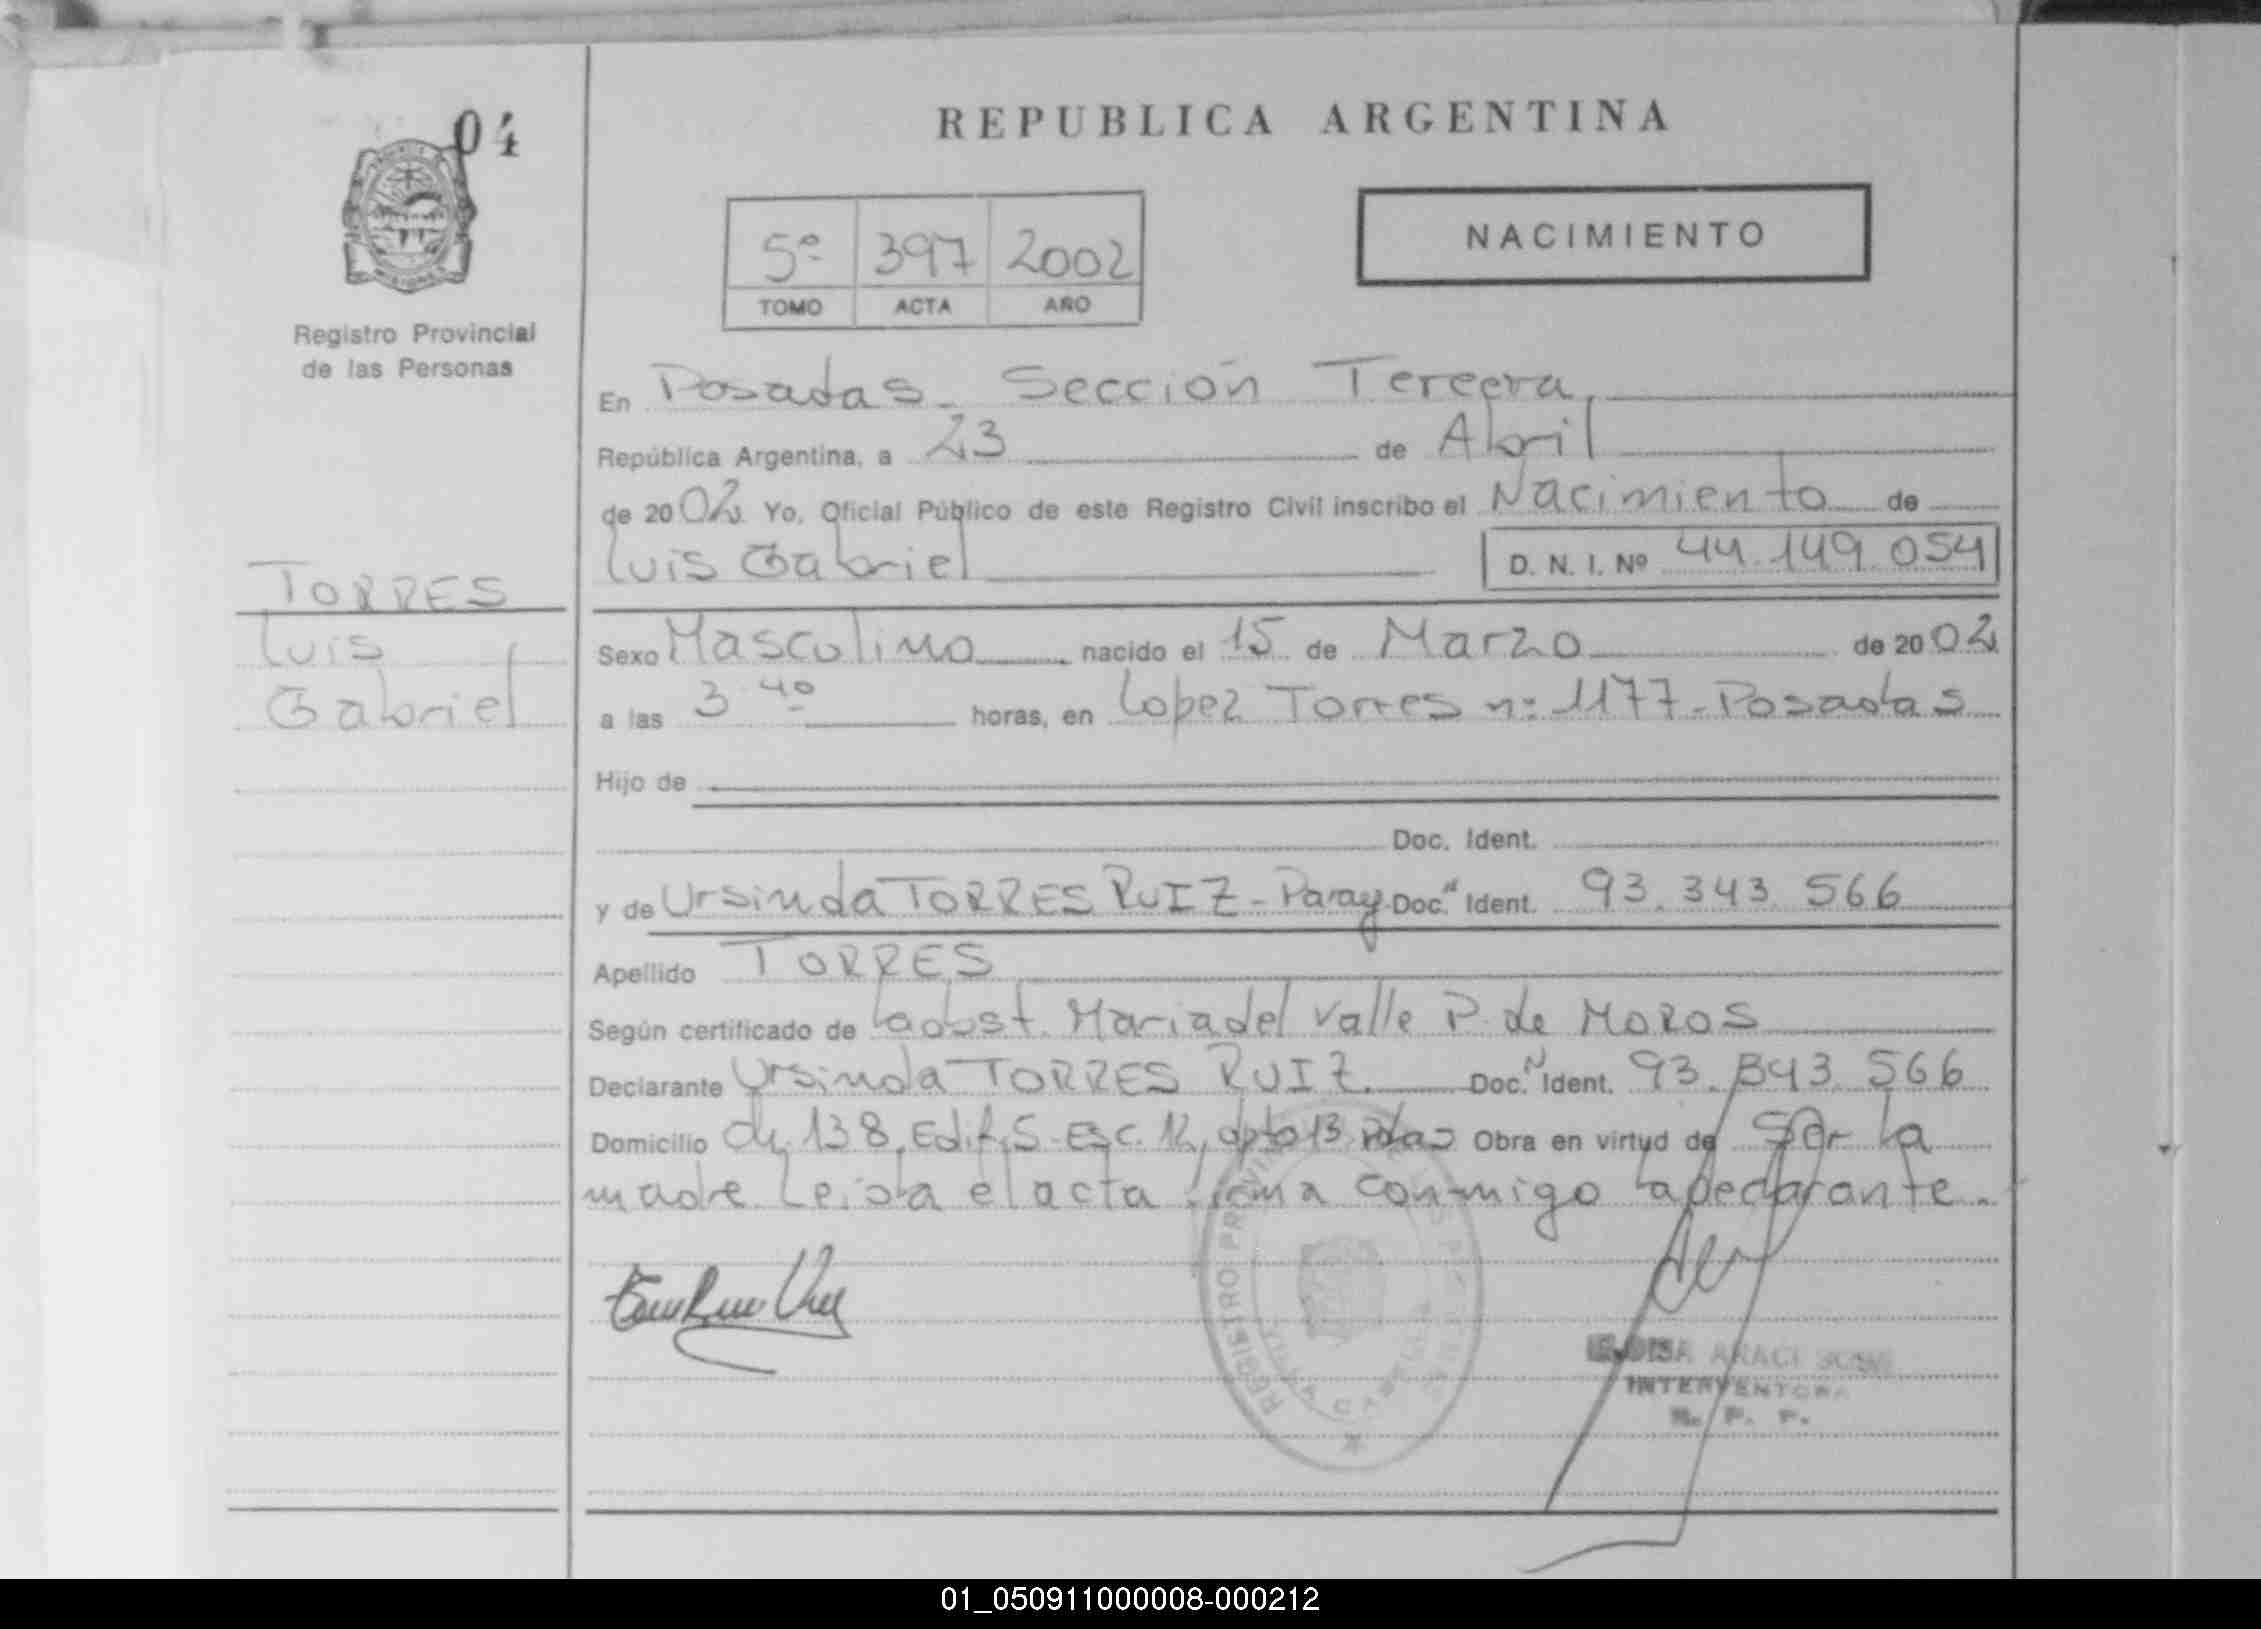 04
REPUBLICA ARGENTINA
NACIMIENTO
5º 397 2002
TOMO ACTA AÑO
Registro Provincial
de las Personas
En Posadas - Sección Tercera
República Argentina, a 23 de Abril
de 2002 Yo, Oficial Público de este Registro Civil inscribo el Nacimiento de
Luis Gabriel D. N. I. Nº 44.149.054
TORRES
Luis
Gabriel
Sexo Masculino nacido el 15 de Marzo de 2002
a las 3.40 horas, en Lopez Torres nº 1177 - Posadas
Hijo de
Doc. Ident.
y de Ursinda TORRES RUIZ - Paray. Doc. Ident. 93.343.566
Apellido TORRES
Según certificado de la obst. Maria del Valle P. de MOROS
Declarante Ursinda TORRES RUIZ Doc. Ident. 93.343.566
Domicilio Ch. 138, Edif. 5 - Esc. 12, dpto 13 Pdas Obra en virtud de Ser la
madre Leida el acta firma conmigo la declarante.
REGISTRO PROVINCIAL DE LAS PERSONAS
INTERVENTORA
R. P. P.
01_050911000008-000212